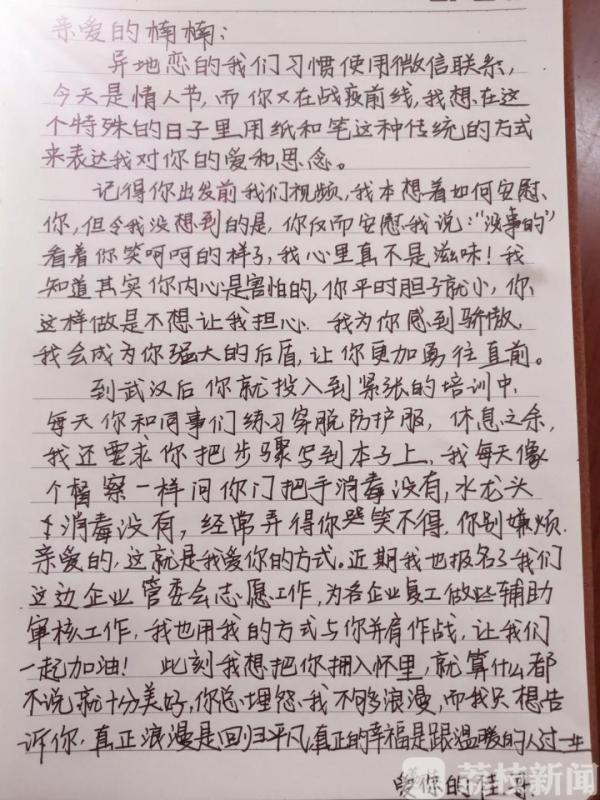 亲爱的楠楠：
异地恋的我们习惯使用微信联系，
今天是情人节，而你又在战疫前线，我想在这
个特殊的日子里用纸和笔这种传统的方式
来表达我对你的爱和思念。
记得你出发前我们视频，我本想着如何安慰
你，但令我没想到的是，你反而安慰我说："没事的"
看着你笑呵呵的样子，我心里真不是滋味！我
知道其实你内心是害怕的，你平时胆子就小，你
这样做是不想让我担心．我为你感到骄傲，
我会成为你强大的后盾，让你更加勇往直前。
到武汉后你就投入到紧张的培训中，
每天你和同事们练习穿脱防护服，休息之余，
我还要求你把步骤写到本子上，我每天像
个督察一样问你门把手消毒没有，水龙头
消毒没有，经常弄得你哭笑不得，你别嫌烦．
亲爱的，这就是我爱你的方式。近期我也报名了我们
这边企业管委会志愿工作，为各企业复工做些辅助
审核工作，我也用我的方式与你并肩作战，让我们
一起加油！此刻我想把你拥入怀里，就算什么都
不说就十分美好，你总埋怨我不够浪漫，而我只想告
诉你，真正浪漫是回归平凡，真正的幸福是跟温暖的人过一生
爱你的 哥
荔枝新闻